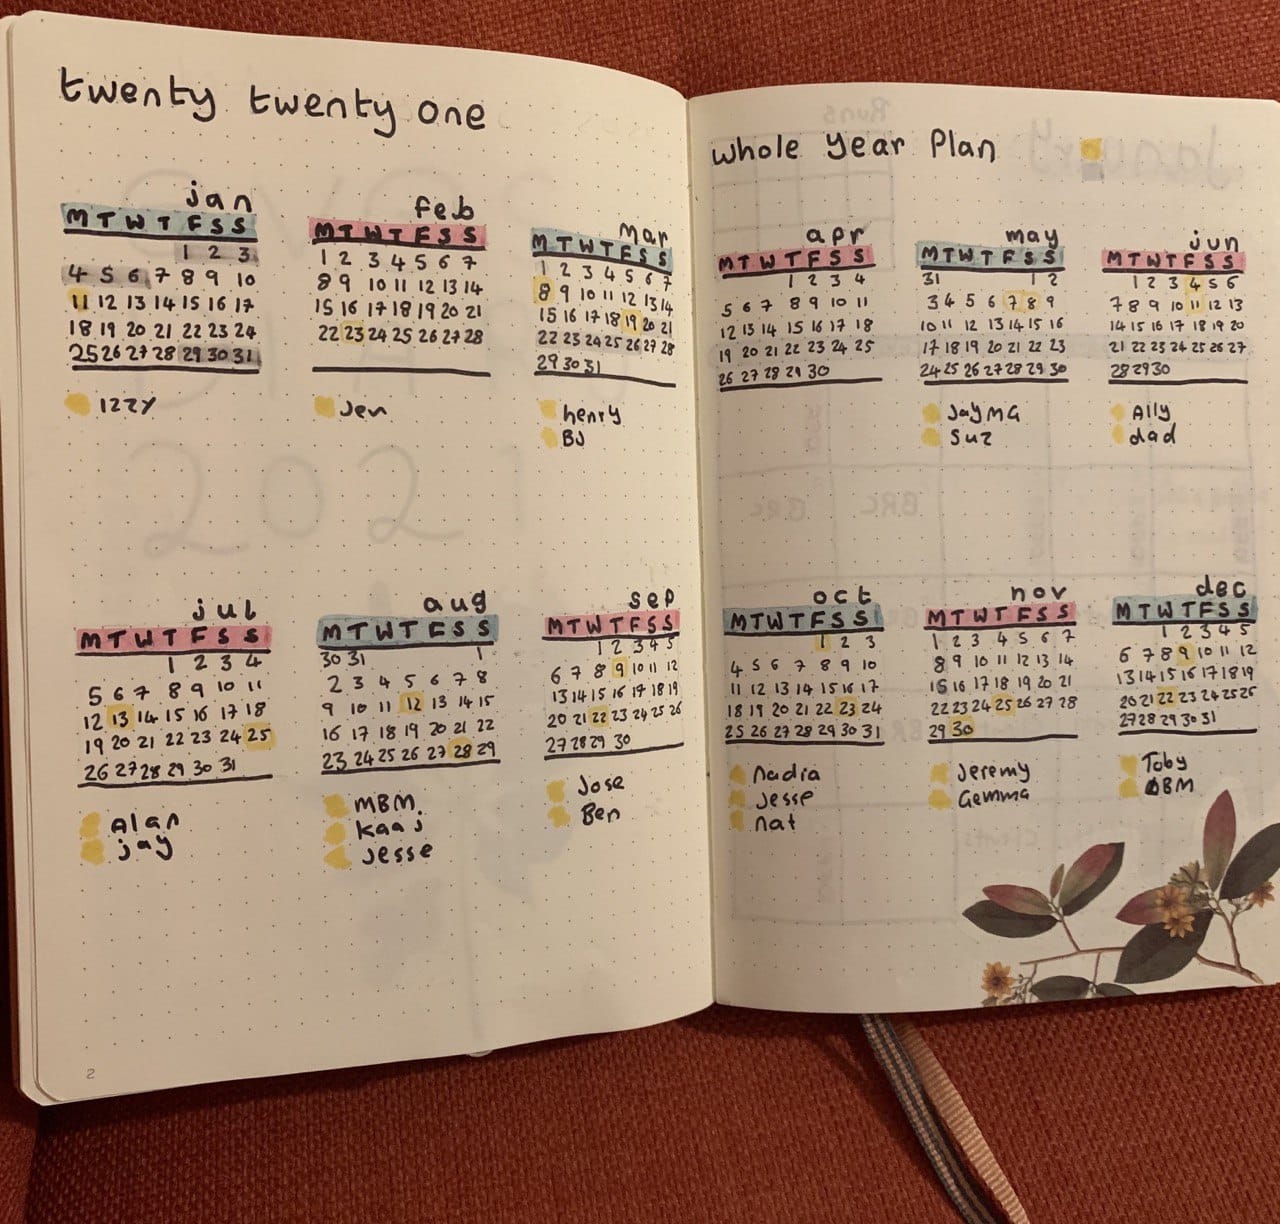 twenty twenty one
jan
M T W T F S S
1 2 3
4 5 6 7 8 9 10
11 12 13 14 15 16 17
18 19 20 21 22 23 24
25 26 27 28 29 30 31
Izzy
feb
M T W T F S S
1 2 3 4 5 6 7
8 9 10 11 12 13 14
15 16 17 18 19 20 21
22 23 24 25 26 27 28
Jen
mar
M T W T F S S
1 2 3 4 5 6 7
8 9 10 11 12 13 14
15 16 17 18 19 20 21
22 23 24 25 26 27 28
29 30 31
henry
BJ
jul
M T W T F S S
1 2 3 4
5 6 7 8 9 10 11
12 13 14 15 16 17 18
19 20 21 22 23 24 25
26 27 28 29 30 31
Alan
jay
aug
M T W T F S S
30 31 1
2 3 4 5 6 7 8
9 10 11 12 13 14 15
16 17 18 19 20 21 22
23 24 25 26 27 28 29
MBM
Kaaj
Jesse
sep
M T W T F S S
1 2 3 4 5
6 7 8 9 10 11 12
13 14 15 16 17 18 19
20 21 22 23 24 25 26
27 28 29 30
Jose
Ben
2
whole year Plan
apr
M T W T F S S
1 2 3 4
5 6 7 8 9 10 11
12 13 14 15 16 17 18
19 20 21 22 23 24 25
26 27 28 29 30
may
M T W T F S S
31 1 2
3 4 5 6 7 8 9
10 11 12 13 14 15 16
17 18 19 20 21 22 23
24 25 26 27 28 29 30
Jay MG
Suz
jun
M T W T F S S
1 2 3 4 5 6
7 8 9 10 11 12 13
14 15 16 17 18 19 20
21 22 23 24 25 26 27
28 29 30
Ally
dad
oct
M T W T F S S
1 2 3
4 5 6 7 8 9 10
11 12 13 14 15 16 17
18 19 20 21 22 23 24
25 26 27 28 29 30 31
Nadia
Jesse
nat
nov
M T W T F S S
1 2 3 4 5 6 7
8 9 10 11 12 13 14
15 16 17 18 19 20 21
22 23 24 25 26 27 28
29 30
Jeremy
Gemma
dec
M T W T F S S
1 2 3 4 5
6 7 8 9 10 11 12
13 14 15 16 17 18 19
20 21 22 23 24 25 26
27 28 29 30 31
Toby
BM